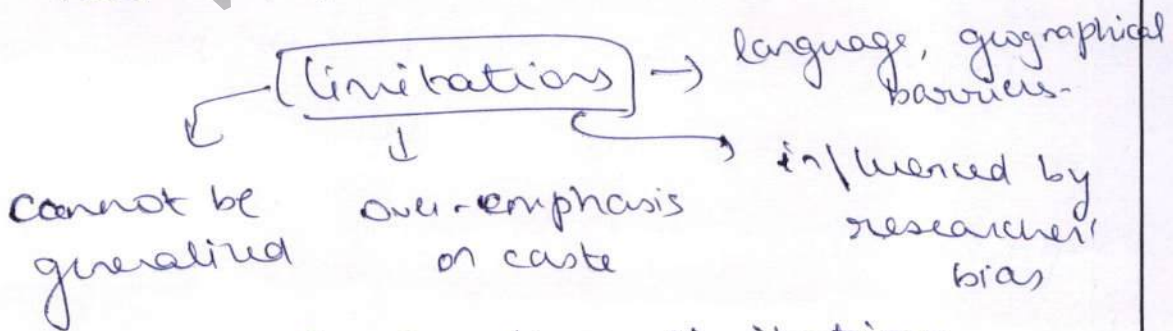 limitations → language, geographical
barriers-
cannot be
generalized
over-emphasis
on caste
influenced by
researcher'
bias